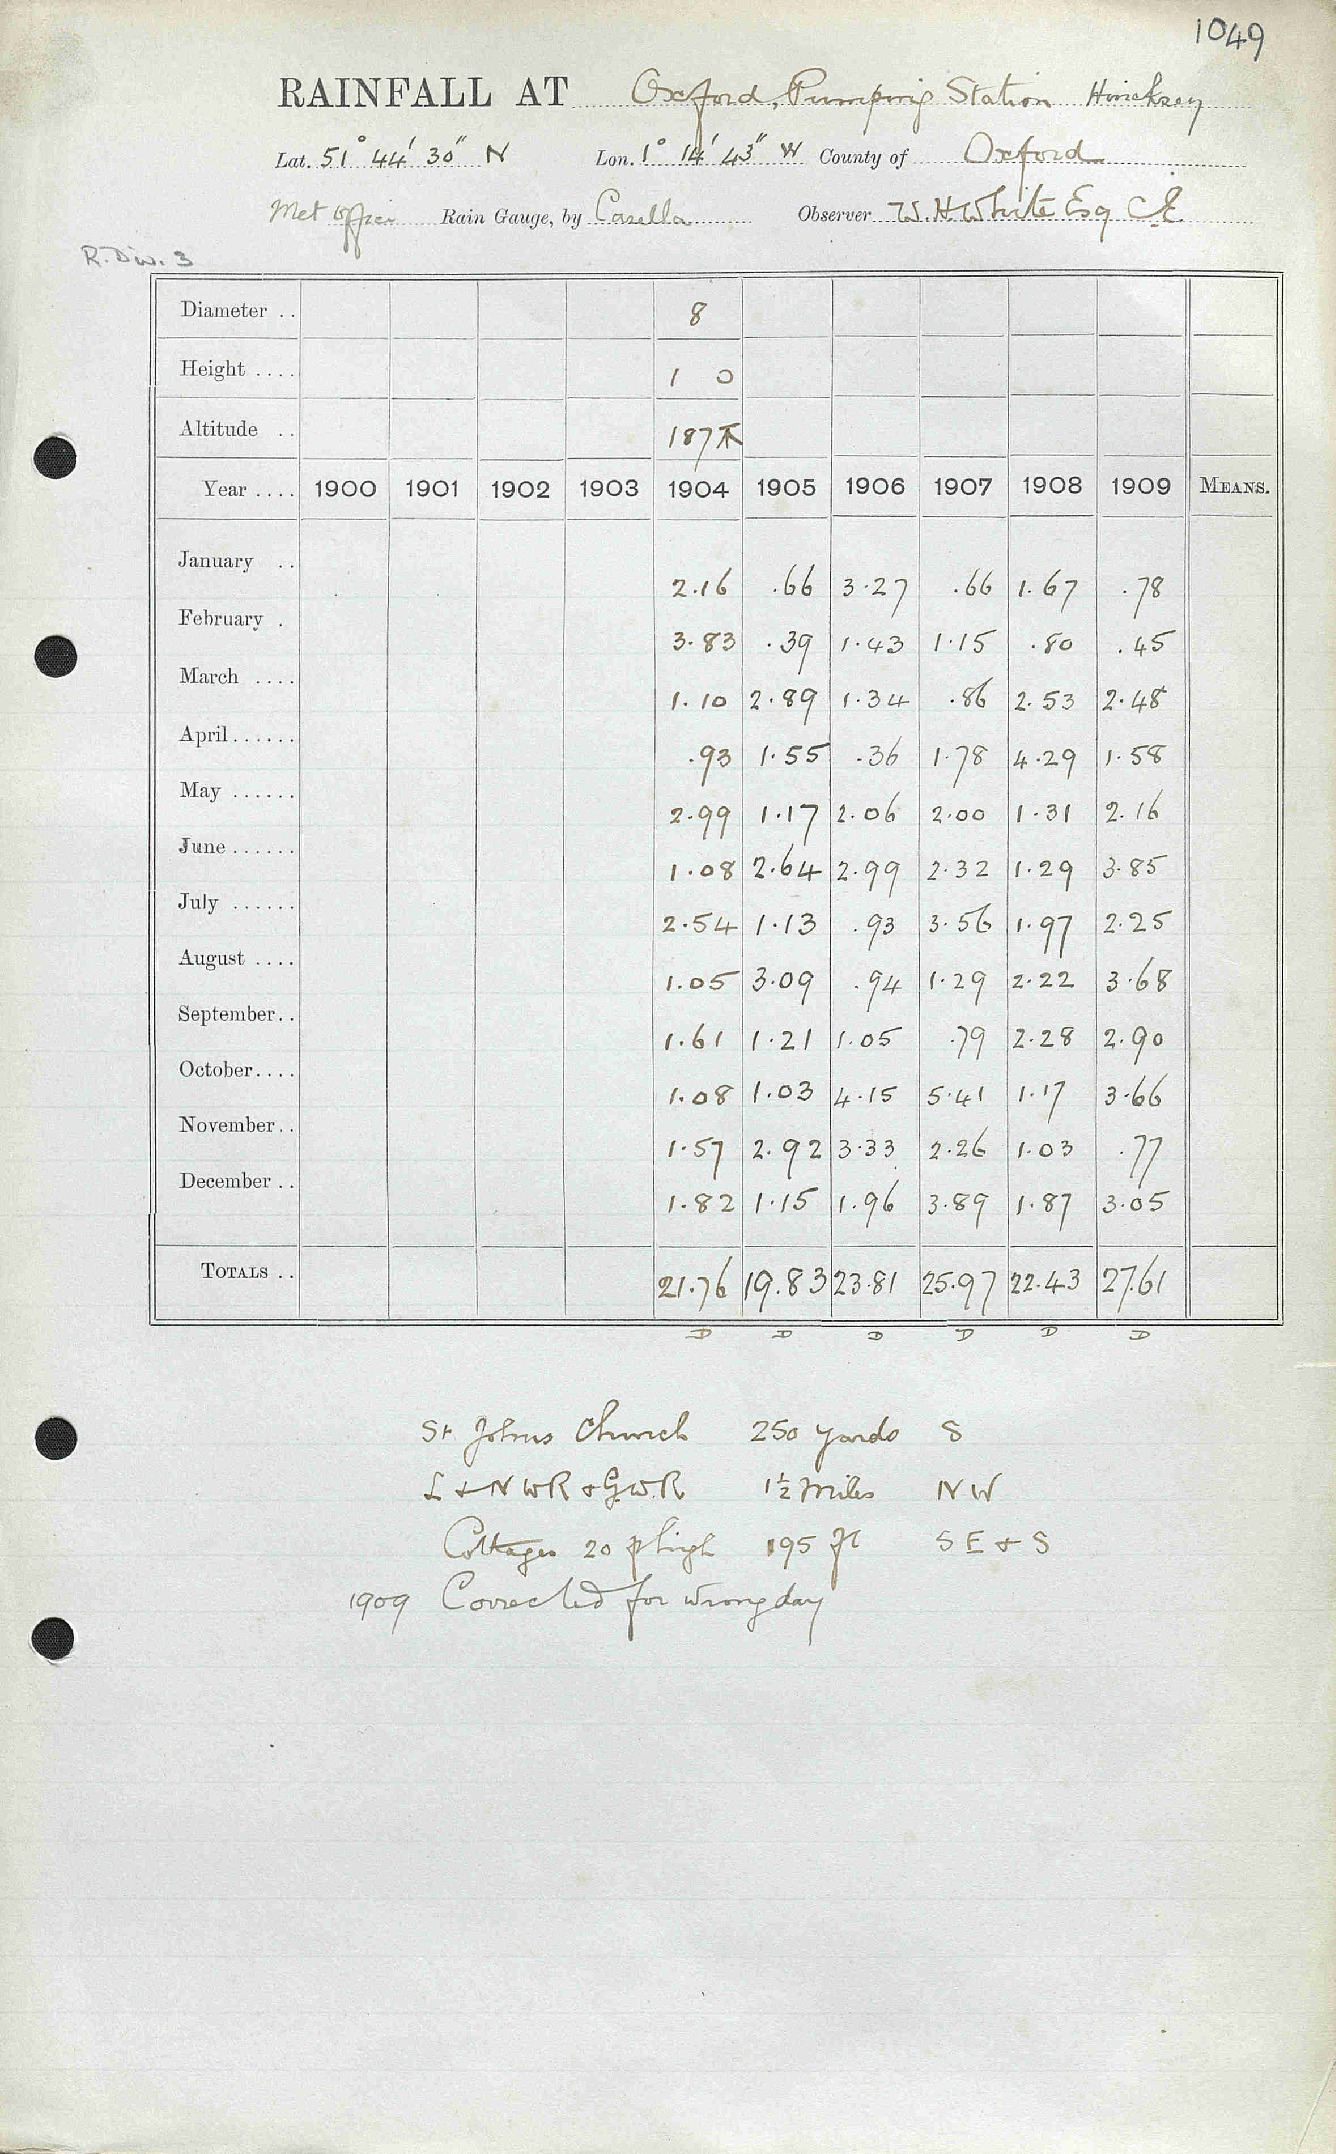 1049
RAINFALL AT Oxford, Pumping Station Hincksey
Lat. 51° 44' 30" N Lon. 1° 14' 43" W County of Oxford
Met Office Rain Gauge, by Casella Observer W. H White Esq C.E
R. Div. 3
Diameter .. 8
Height .... 1 0
Altitude .. 187
Year .... 1900 1901 1902 1903 1904 1905 1906 1907 1908 1909 MEANS.
January .. 2.16 .66 3.27 .66 1.67 .78
February . 3.83 .39 1.43 1.15 .80 .45
March .... 1.10 2.89 1.34 .86 2.53 2.48
April...... .93 1.55 .36 1.78 4.29 1.58
May ...... 2.99 1.17 2.06 2.00 1.31 2.16
June ...... 1.08 2.64 2.99 2.32 1.29 3.85
July ...... 2.54 1.13 .93 3.56 1.97 2.25
August .... 1.05 3.09 .94 1.29 2.22 3.68
September.. 1.61 1.21 1.05 .79 2.28 2.90
October.... 1.08 1.03 4.15 5.41 1.17 3.66
November.. 1.57 2.92 3.33 2.26 1.03 .77
December .. 1.82 1.15 1.96 3.89 1.87 3.05
TOTALS .. 21.76 19.83 23.81 25.97 22.43 27.61
D D D D D D
St Johns Church 250 yards S
L & N W R & G.W.R 1½ miles NW
Cottages 20 ft high 195 ft S E & S
1909 Corrected for wrong day